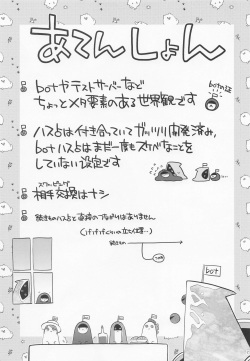 あてんしょん
botやテストサーバーなど
ちょっとメタ要素のある世界観です
botの証
ハス占は付き合っていてガッツリ開発済み、
botハス占はまだ一度もスケベなことを
していない設定です
相手交換はナシ
続きものハス占と直接のつながりはありません
bot